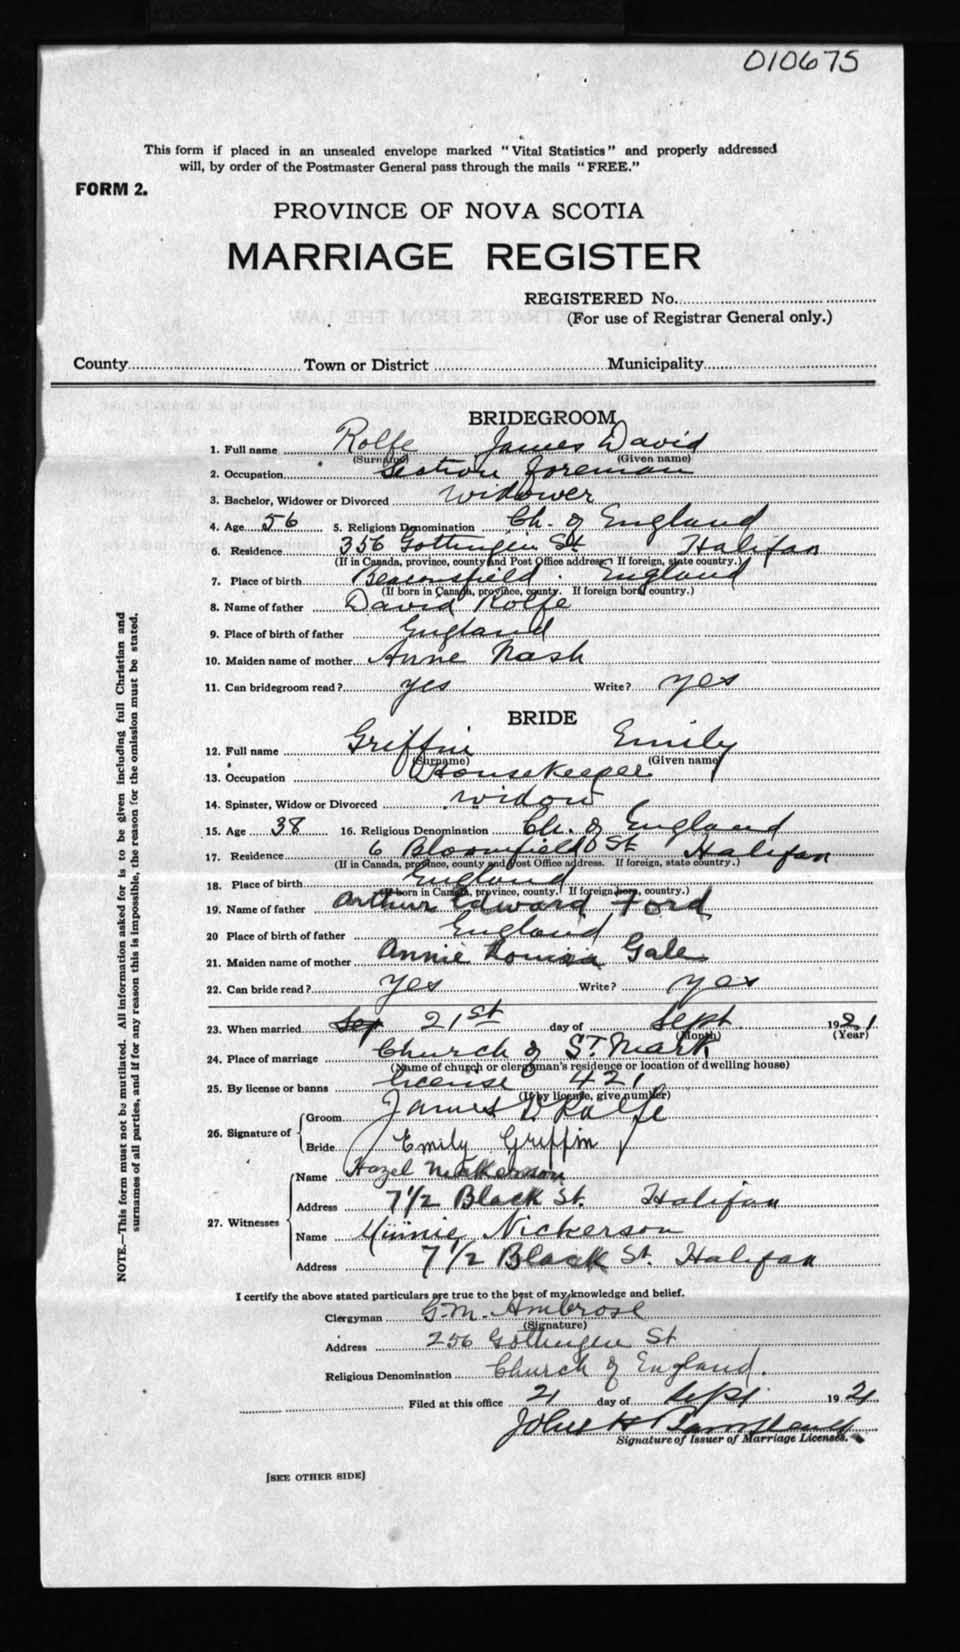 010675
This form if placed in an unsealed envelope marked "Vital Statistics" and properly addressed
will, by order of the Postmaster General pass through the mails "FREE."
FORM 2.
PROVINCE OF NOVA SCOTIA
MARRIAGE REGISTER
REGISTERED No.
(For use of Registrar General only.)
County Town or District Municipality
BRIDEGROOM
1. Full name Rolfe James David
(Surname) (Given name)
2. Occupation Section Foreman
3. Bachelor, Widower or Divorced Widower
4. Age 56 5. Religious Denomination Ch. of England
6. Residence 356 Gottingen St Halifax
(If in Canada, province, county and Post Office address. If foreign, state country.)
7. Place of birth Beaconsfield England
(If born in Canada, province, county. If foreign born, country.)
8. Name of father David Rolfe
9. Place of birth of father England
10. Maiden name of mother Anne Nash
11. Can bridegroom read? yes Write? yes
BRIDE
12. Full name Griffin Emily
(Surname) (Given name)
13. Occupation Housekeeper
14. Spinster, Widow or Divorced widow
15. Age 38 16. Religious Denomination Ch. of England
17. Residence 6 Bloomfield St Halifax
(If in Canada, province, county and Post Office address. If foreign, state country.)
18. Place of birth England
(If born in Canada, province, county. If foreign born, country.)
19. Name of father Arthur Edward Ford
20 Place of birth of father England
21. Maiden name of mother Annie Louisa Gale
22. Can bride read? yes Write? yes
23. When married Sep 21st day of Sept 1921
(Month) (Year)
24. Place of marriage Church of St. Mark
(Name of church or clergyman's residence or location of dwelling house)
25. By license or banns license 421
(If by license, give number)
26. Signature of Groom James D Rolfe
Bride Emily Griffin
27. Witnesses Name Hazel Nickerson
Address 7 1/2 Black St. Halifax
Name Minnie Nickerson
Address 7 1/2 Black St. Halifax
I certify the above stated particulars are true to the best of my knowledge and belief.
Clergyman G.M. Ambrose
(Signature)
Address 256 Gottingen St
Religious Denomination Church of England.
Filed at this office 21 day of Sept 1921
John H
Signature of Issuer of Marriage Licenses.
[SEE OTHER SIDE]
NOTE.—This form must not be mutilated. All information asked for is to be given including full Christian and
surnames of all parties, and if for any reason this is impossible, the reason for the omission must be stated.